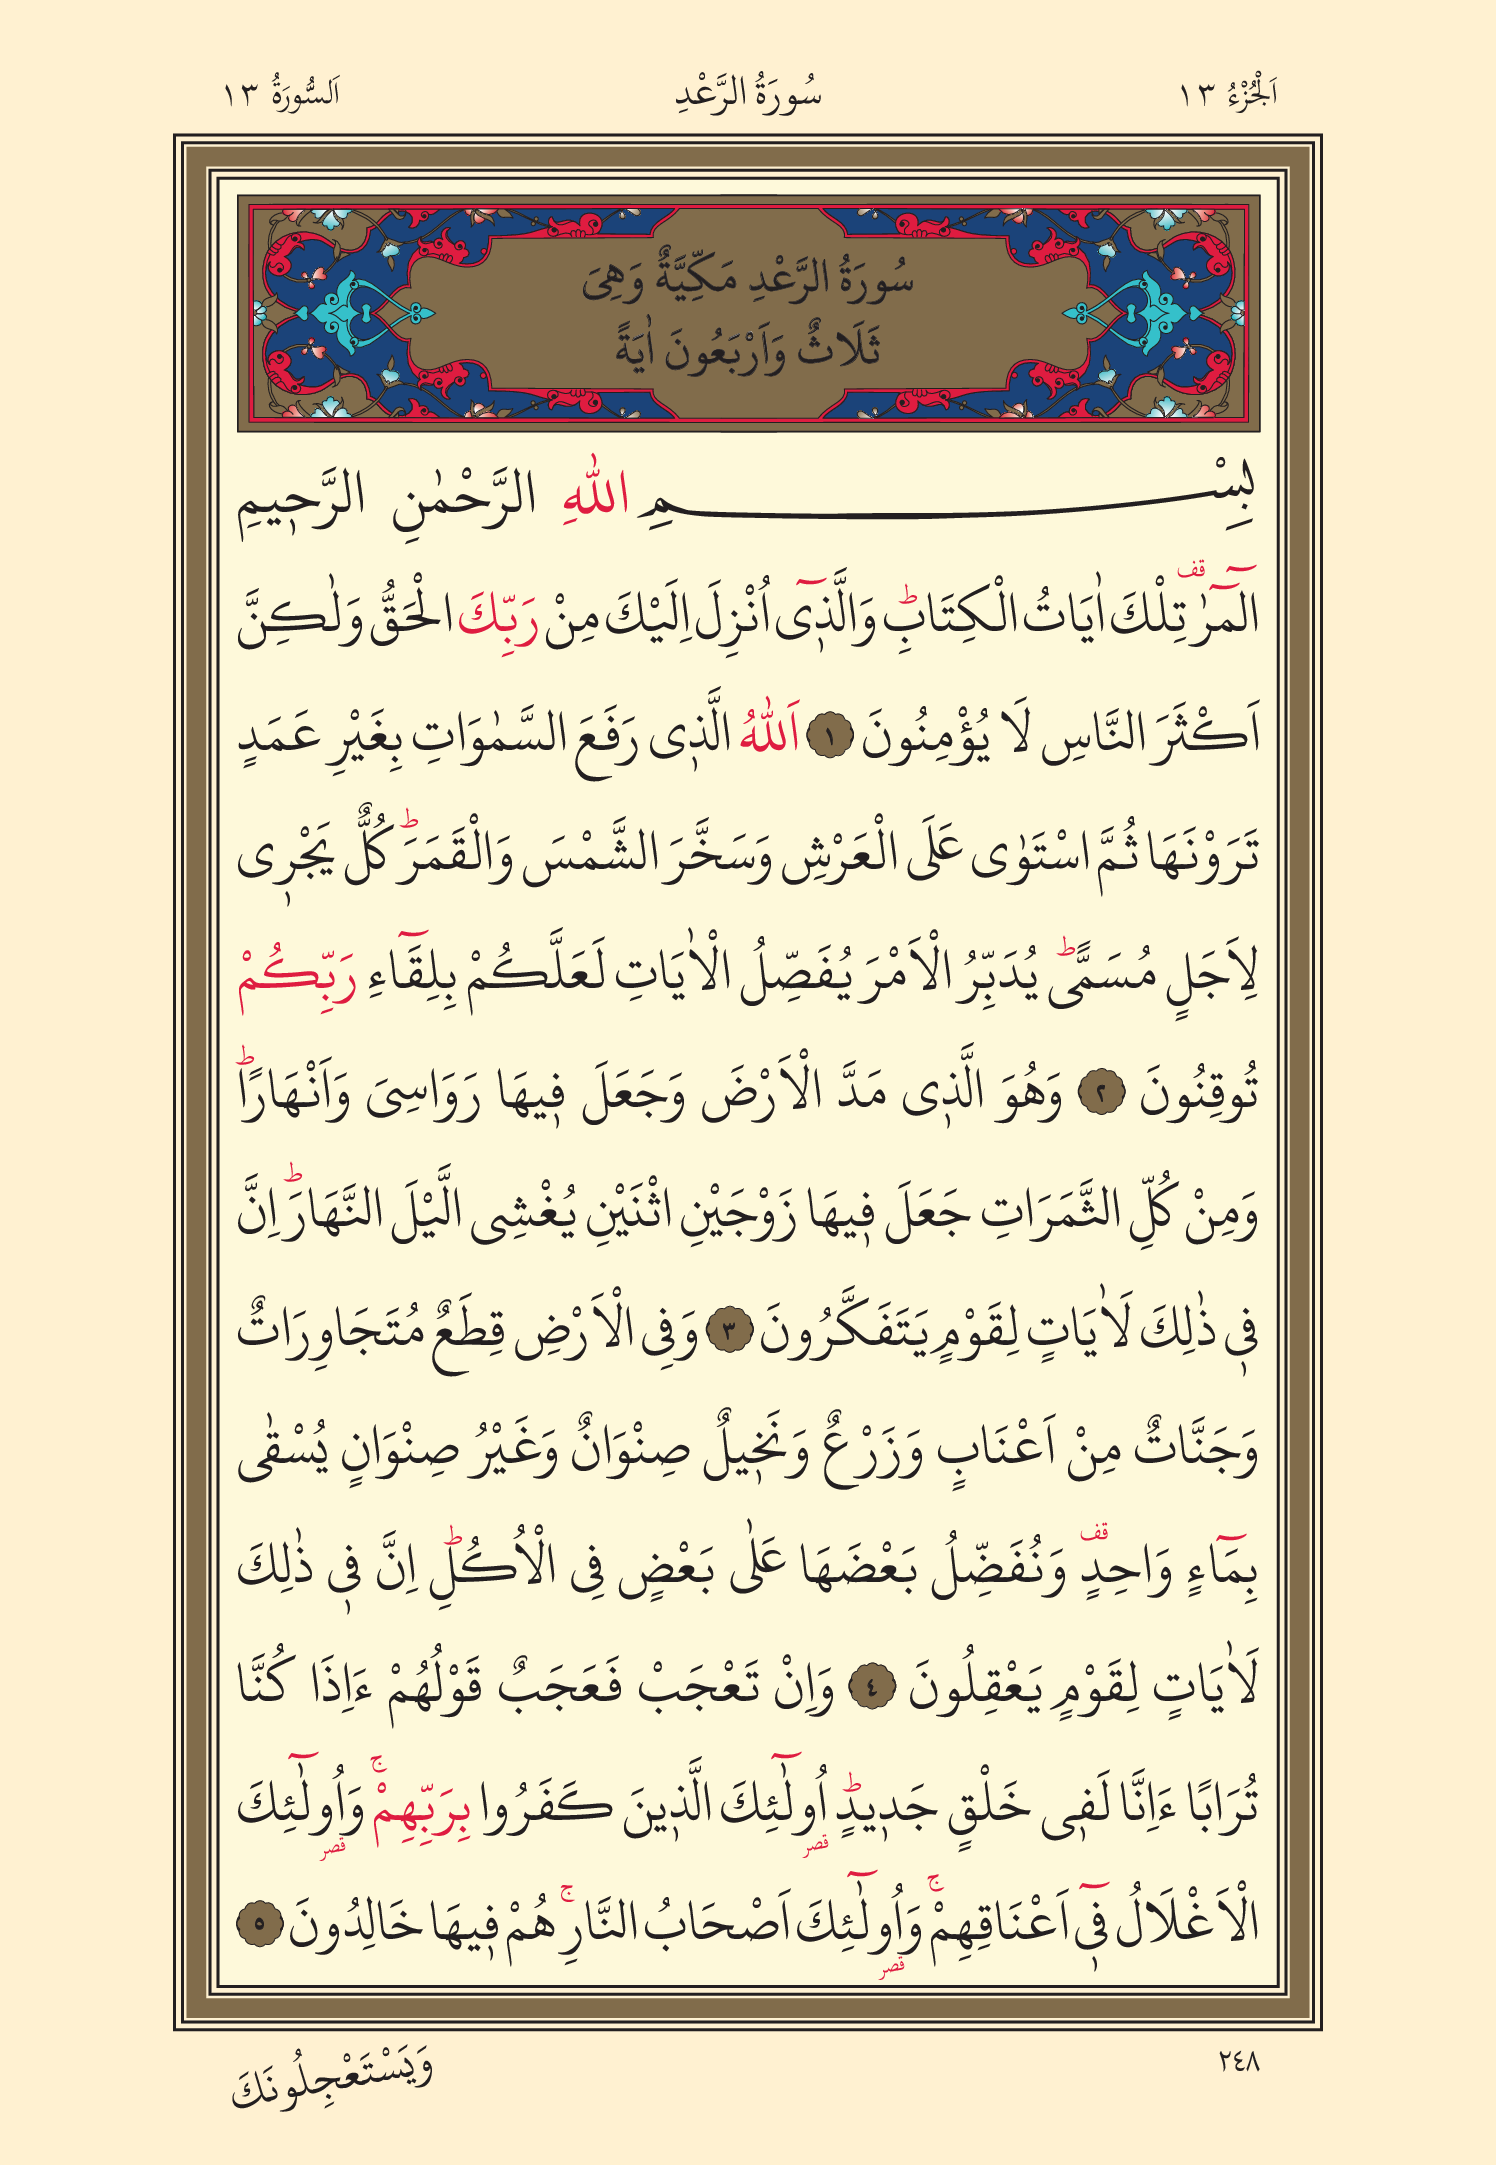 اَلْجُزْءُ ١٣
سُورَةُ الرَّعْدِ
اَلسُّورَةُ ١٣
سُورَةُ الرَّعْدِ مَكِّيَّةٌ وَهِىَ
ثَلَاثٌ وَاَرْبَعُونَ اٰيَةً
بِسْــــــــــمِ اللّٰهِ الرَّحْمٰنِ الرَّح۪يمِ
الٓمٓرٰ۠ قف تِلْكَ اٰيَاتُ الْكِتَابِۜ وَالَّذ۪ٓى اُنْزِلَ اِلَيْكَ مِنْ رَبِّكَ الْحَقُّ وَلٰكِنَّ
اَكْثَرَ النَّاسِ لَا يُؤْمِنُونَ ١ اَللّٰهُ الَّذ۪ى رَفَعَ السَّمٰوَاتِ بِغَيْرِ عَمَدٍ
تَرَوْنَهَا ثُمَّ اسْتَوٰى عَلَى الْعَرْشِ وَسَخَّرَ الشَّمْسَ وَالْقَمَرَۜ كُلٌّ يَجْر۪ى
لِاَجَلٍ مُسَمًّىۜ يُدَبِّرُ الْاَمْرَ يُفَصِّلُ الْاٰيَاتِ لَعَلَّكُمْ بِلِقَٓاءِ رَبِّكُمْ
تُوقِنُونَ ٢ وَهُوَ الَّذ۪ى مَدَّ الْاَرْضَ وَجَعَلَ ف۪يهَا رَوَاسِىَ وَاَنْهَارًاۜ
وَمِنْ كُلِّ الثَّمَرَاتِ جَعَلَ ف۪يهَا زَوْجَيْنِ اثْنَيْنِ يُغْشِى الَّيْلَ النَّهَارَۜ اِنَّ
ف۪ى ذٰلِكَ لَاٰيَاتٍ لِقَوْمٍ يَتَفَكَّرُونَ ٣ وَفِى الْاَرْضِ قِطَعٌ مُتَجَاوِرَاتٌ
وَجَنَّاتٌ مِنْ اَعْنَابٍ وَزَرْعٌ وَنَخ۪يلٌ صِنْوَانٌ وَغَيْرُ صِنْوَانٍ يُسْقٰى
بِمَٓاءٍ وَاحِدٍ قف وَنُفَضِّلُ بَعْضَهَا عَلٰى بَعْضٍ فِى الْاُكُلِۜ اِنَّ ف۪ى ذٰلِكَ
لَاٰيَاتٍ لِقَوْمٍ يَعْقِلُونَ ٤ وَاِنْ تَعْجَبْ فَعَجَبٌ قَوْلُهُمْ ءَاِذَا كُنَّا
تُرَابًا ءَاِنَّا لَف۪ى خَلْقٍ جَد۪يدٍۜ اُو۬لٰٓئِكَ الَّذ۪ينَ كَفَرُوا بِرَبِّهِمْۚ وَاُو۬لٰٓئِكَ
قصر قصر
الْاَغْلَالُ ف۪ٓى اَعْنَاقِهِمْۚ وَاُو۬لٰٓئِكَ اَصْحَابُ النَّارِۚ هُمْ ف۪يهَا خَالِدُونَ ٥
قصر
٢٤٨
وَيَسْتَعْجِلُونَكَ